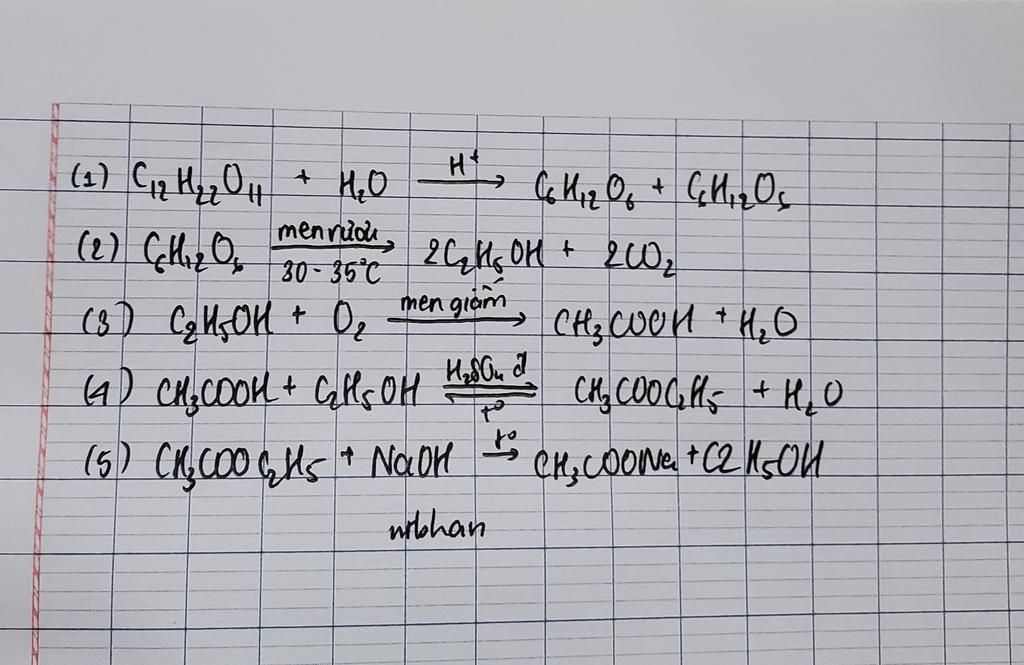 (1) C₁₂H₂₂O₁₁ + H₂O —H⁺→ C₆H₁₂O₆ + C₆H₁₂O₆
(2) C₆H₁₂O₆ —men rượu 30-35°C→ 2C₂H₅OH + 2CO₂
(3) C₂H₅OH + O₂ —men giấm→ CH₃COOH + H₂O
(4) CH₃COOH + C₂H₅OH ⇌ H₂SO₄ đ t° CH₃COOC₂H₅ + H₂O
(5) CH₃COOC₂H₅ + NaOH —t°→ CH₃COONa + C2H₅OH